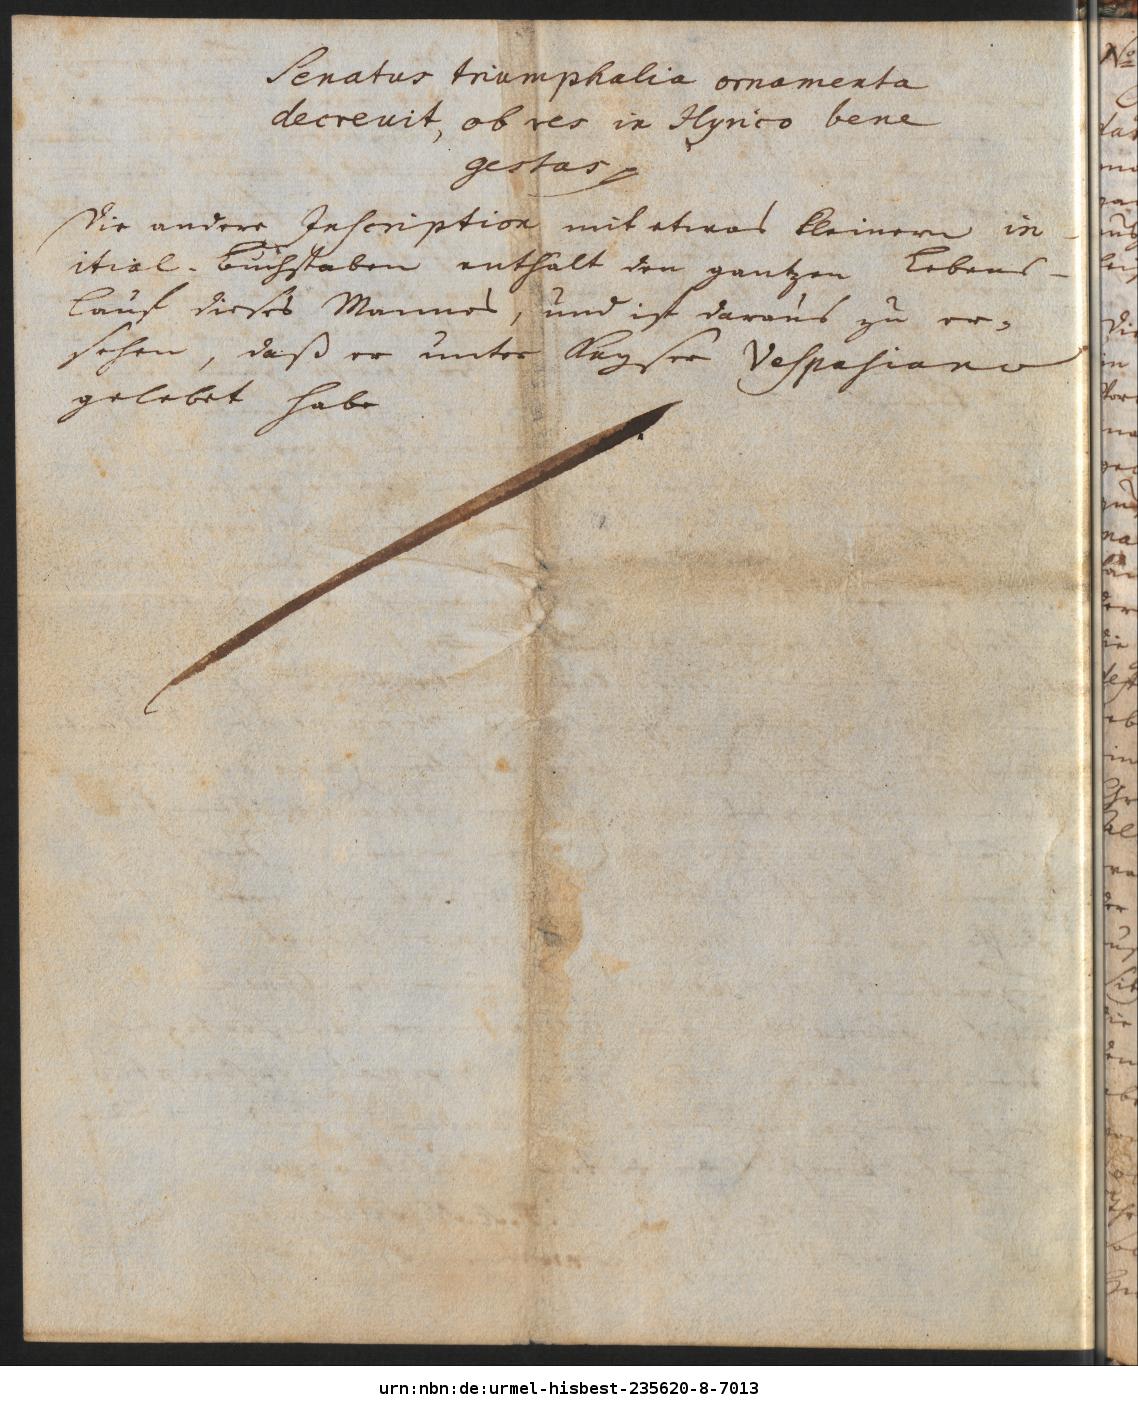 Senatus triumphalia ornamenta
decrevit, ob res in Illyrico bene
gestas
Die andere Inscription mit etwas kleinern in-
itial-Buchstaben enthält den gantzen Lebens-
lauf dieses Mannes, und ist daraus zu er-
sehen, daß er unter Kayser Vespasiano
gelebet habe
urn:nbn:de:urmel-hisbest-235620-8-7013